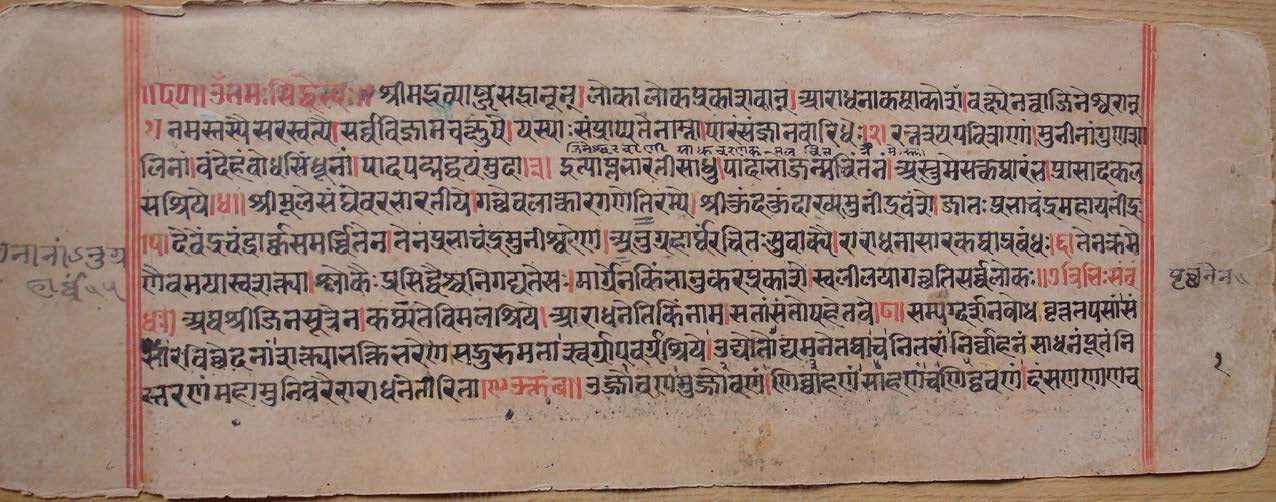 ॥८०॥ ॐ नमः सिद्धेभ्यः॥ श्रीमद्भव्याब्जसद्भानून्। लोकालोकप्रकाशकान्। आराधनाकथाकोशं। वक्ष्ये नत्वा जिनेश्वरान्
१ नमस्तस्यै सरस्वत्यै। सर्वविज्ञानचक्षुषे। यस्याः संप्राप्यते नाम्ना। पारं संज्ञानवारिधेः।२। रत्नत्रयपवित्राणां। मुनीनां गुणशा
लिनां। वंदेहं बोधसिंधूनां। पादपद्मद्वयं मुदा।३। इत्याप्तभारतीसाधु। पादानां चिंतनं। अस्तु मे सत्कथारंभ। प्रासादकल
सश्रिये।४॥ श्रीमूलसंघे वरभारतीये। गच्छे बलात्कारगणेतिरम्ये। श्रीकुंदकुंदाख्यमुनींद्रवंशे। जातः प्रभाचंद्रमहायतींद्रः
।५। देवेंद्रचंद्रार्कसमर्च्चितेन। तेन प्रभाचंद्रमुनीश्वरेण। अनुग्रहार्थं रचितः सुवाक्यै। राराधनासारकथाप्रबंधः।६। तेन क्रमे
णैव मया स्वशक्त्या। श्लोकैः प्रसिद्धैश्च निगद्यते सः। मार्गे न किं भानुकरप्रकाशे। स्वलीलया गच्छति सर्वलोकः॥७
अथ श्रीजिनसूत्रेन। कथ्यते विमलश्रिये। आराधनेति किं नाम। सतां संतोषहेतवे।८। सम्यग्दर्शनबोध वृत्ततपसां सं
सारविच्छेदनां। शक्त्या भक्तिभरेण सद्गुरुमतां स्वर्गापवर्गश्रिये। उद्योतोद्यमने तथा च नितरां निर्वाहनं साधनं पूतं नि
स्तरणं महामुनिवरैराराधनेतीरिता।९ उक्तं च॥ उज्जोवणमुज्जोवणं। णिव्वाहणं साहणं च णिच्छरणं। दंसणणाणच
२